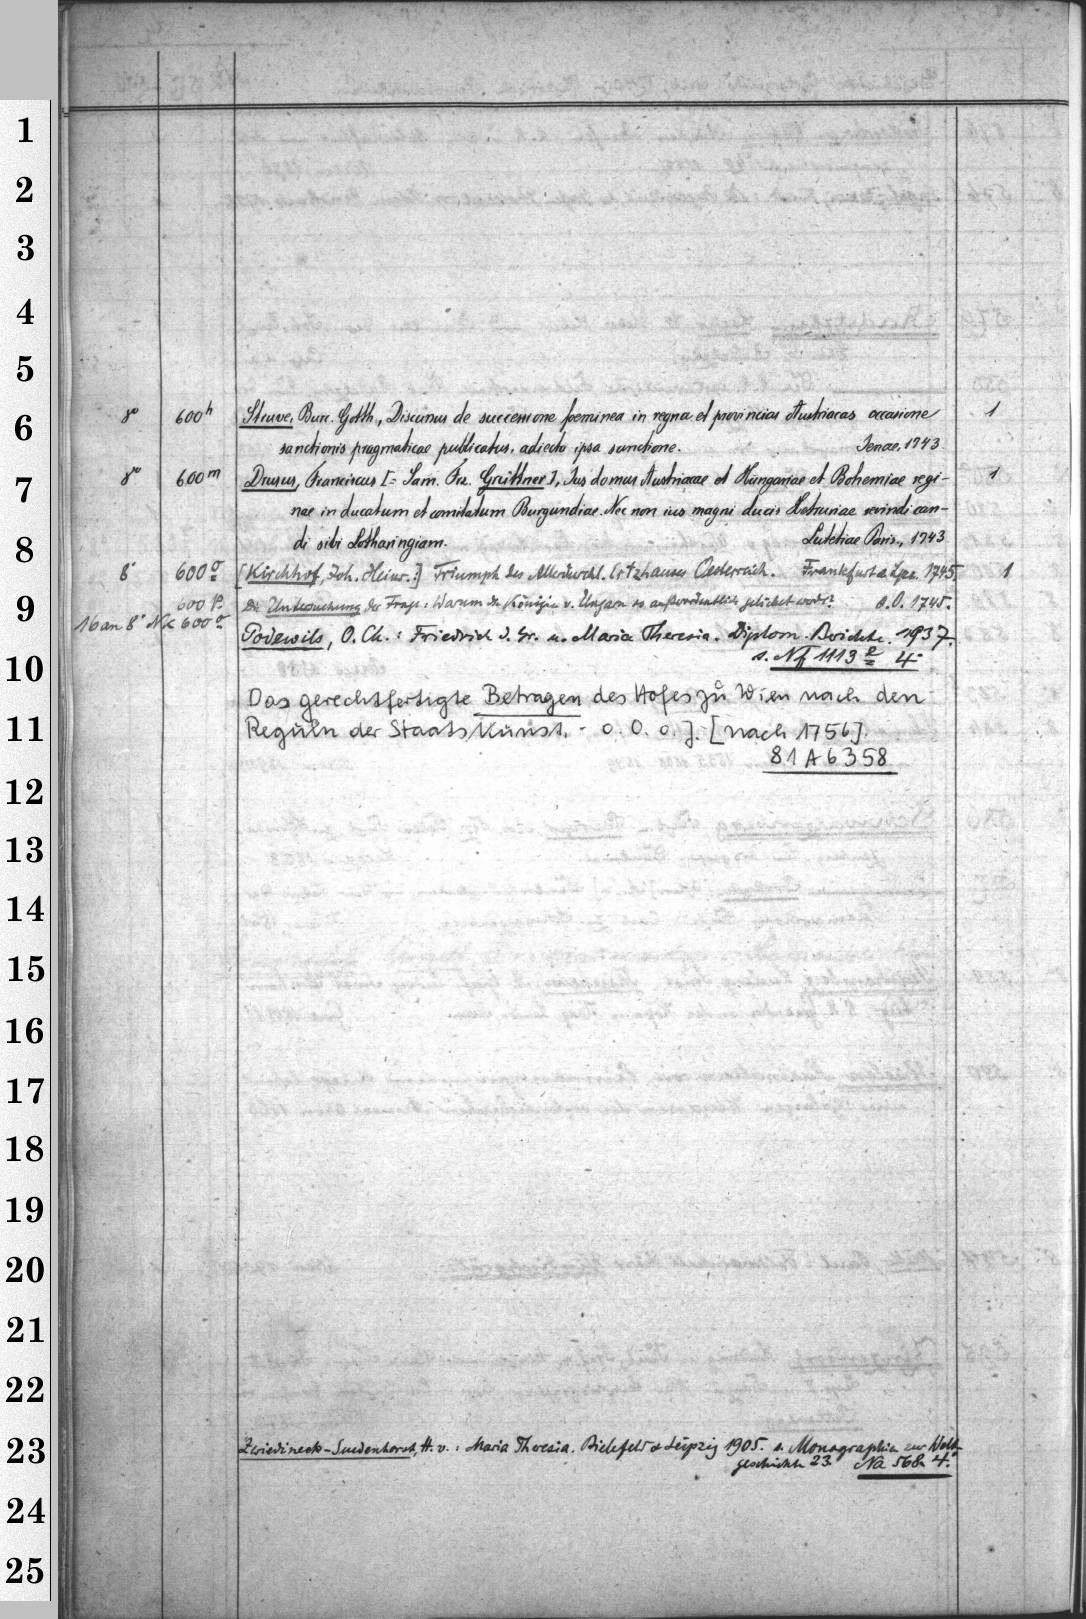 1
2
3
4
5
6
7
8
9
10
11
12
13
14
15
16
17
18
19
20
21
22
23
24
25
8° 600h Struve, Burc. Gotth., Discursus de successione foeminea in regna et provincias Austriacas occasione 1
sanctionis pragmaticae publicatus, adiecta ipsa sanctione. Jenae, 1743.
8° 600m Drusus, Franciscus [= Sam. Fr. Greittner], Ius domus Austriacae et Hungariae et Bohemiae regi- 1
nae in ducatum et comitatum Burgundiae. Nec non ius magni ducis Hetruriae revindican-
di sibi Lotharingiam. Lutetiae Paris., 1743
8° 600o [Kirchhof, Joh. Heinr.:] Triumph des Allerdurchl. Ertzhauses Oesterreich. Frankfurt & Lpz. 1745. 1
600p. Die Untersuchung der Frage: Warum die Königin v. Ungarn so außerordentlich geliebet werde? o.O. 1745.
16 an 8° Nk 600o Podewils, O. Ch.: Friedrich d. Gr. u. Maria Theresia. Diplom. Berichte. 1937.
s. Nf 1113 4°
Das gerechtfertigte Betragen des Hofes zu Wien nach den
Reguln der Staats Kunst. - o. O. o. J. [nach 1756].
81 A 6358
Zwiedineck-Suedenhorst, H. v.: Maria Theresia. Bielefeld & Leipzig 1905. s. Monographien zur Welt-
geschichte 23. Na 568 4°